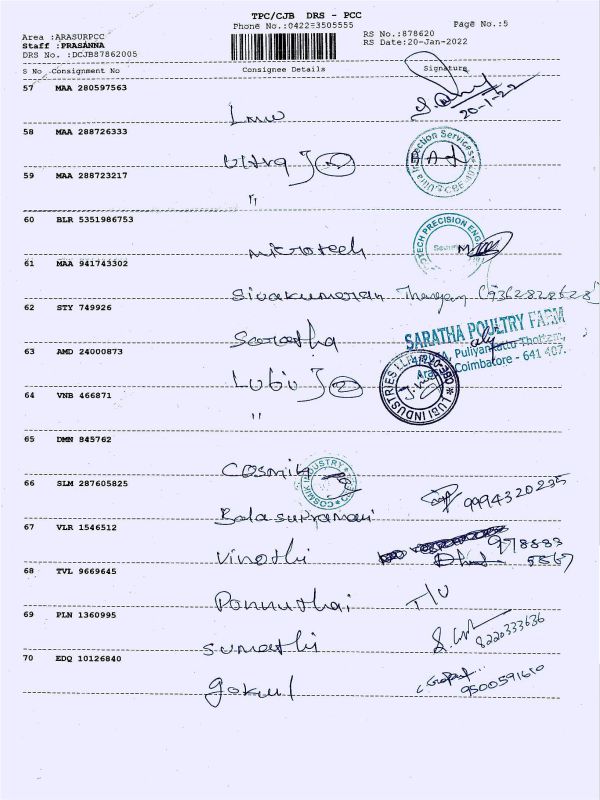 TPC/CJB DRS - PCC
Phone No.:0422-3505555
Page No.:5
Area :ARASURPCC
Staff :PRASANNA
DRS No. :DCJB87862005
RS No.:878620
RS Date:20-Jan-2022
S No Consignment No Consignee Details Signature
57 MAA 280597563
Lmw 20-1-22
58 MAA 288726333
Ultra
59 MAA 288723217
"
60 BLR 5351986753
microtech
61 MAA 941743302
Sivakumaran Thangam (9362828628)
62 STY 749926
Saratha
SARATHA POULTRY FARM
Puliyankattu Thottam,
Coimbatore - 641 407.
63 AMD 24000873
Lubi
LUBI INDUSTRIES LLP
64 VNB 466871
"
65 DMN 845762
Cosmik
COSMIK INDUSTRY
66 SLM 287605825
Balasubramani 9994320235
67 VLR 1546512
Vinothi 978883
5567
68 TVL 9669645
Ponnuthai T/U
69 PLN 1360995
Sumathi 8220333636
70 EDQ 10126840
gokul 9500591610